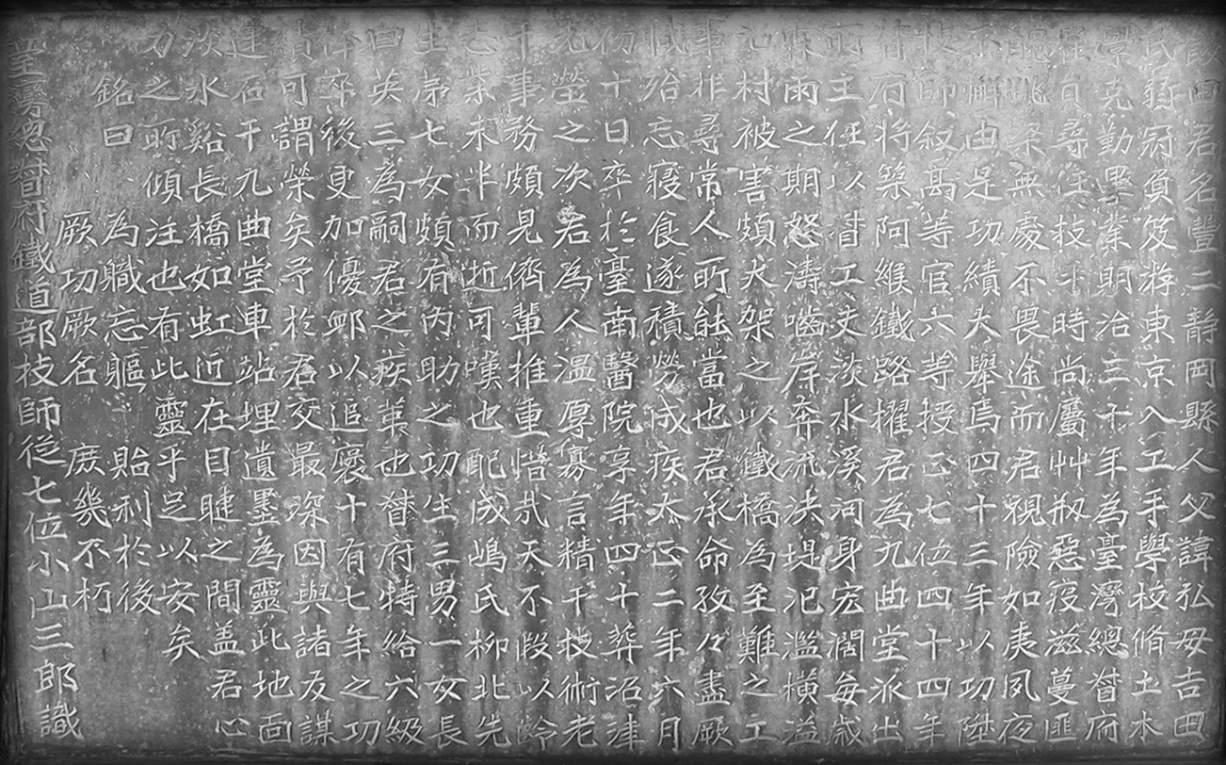 飯田君名豐二靜岡縣人父諱弘毋吉田
氏弱冠負笈游東京入工手學校脩土木
學克勤畢業明治三十年為臺灣總督府
雇員尋任技手時尚屬艸剏惡疫滋蔓匪
跳梁無處不畏途而君視險如夷夙夜
不懈由是功績大舉焉四十三年以功陞
技師叙高等官六等授正七位四十四年
督府將築阿緱鐵路擢君為九曲堂派出
所主任以督工夫淡水溪河身宏濶每歲
霖雨之期怒濤嚙岸奔流決堤汜濫橫溢
沿村被害頗大架之以鐵橋為至難之工
事非尋常人所能當也君承命孜々盡厥
職殆忘寢食遂積勞成疾大正二年六月
初十日卒於臺南醫院享年四十葬沼津
先塋之次君為人溫厚寡言精于技術老
于事務頗見儕輩推重惜哉天不假以齡
志業未半而逝可嘆也配成嶋氏柳北先
生弟七女頗有內助之功生三男一女長
曰英三為嗣君之疾革也督府特給六級
俸卒後更加優卹以追褒十有七年之功
績可謂榮矣予於君交最深因與諸友謀
建石于九曲堂車站埋遺墨為靈此地面
淡水谿長橋如虹近在目睫之間盖君心
力之所傾注也有此靈乎足以安矣
銘曰、為職忘軀 貽利於後
厥功厥名 庶幾不朽
臺灣總督府鐵道部技師從七位小山三郎識